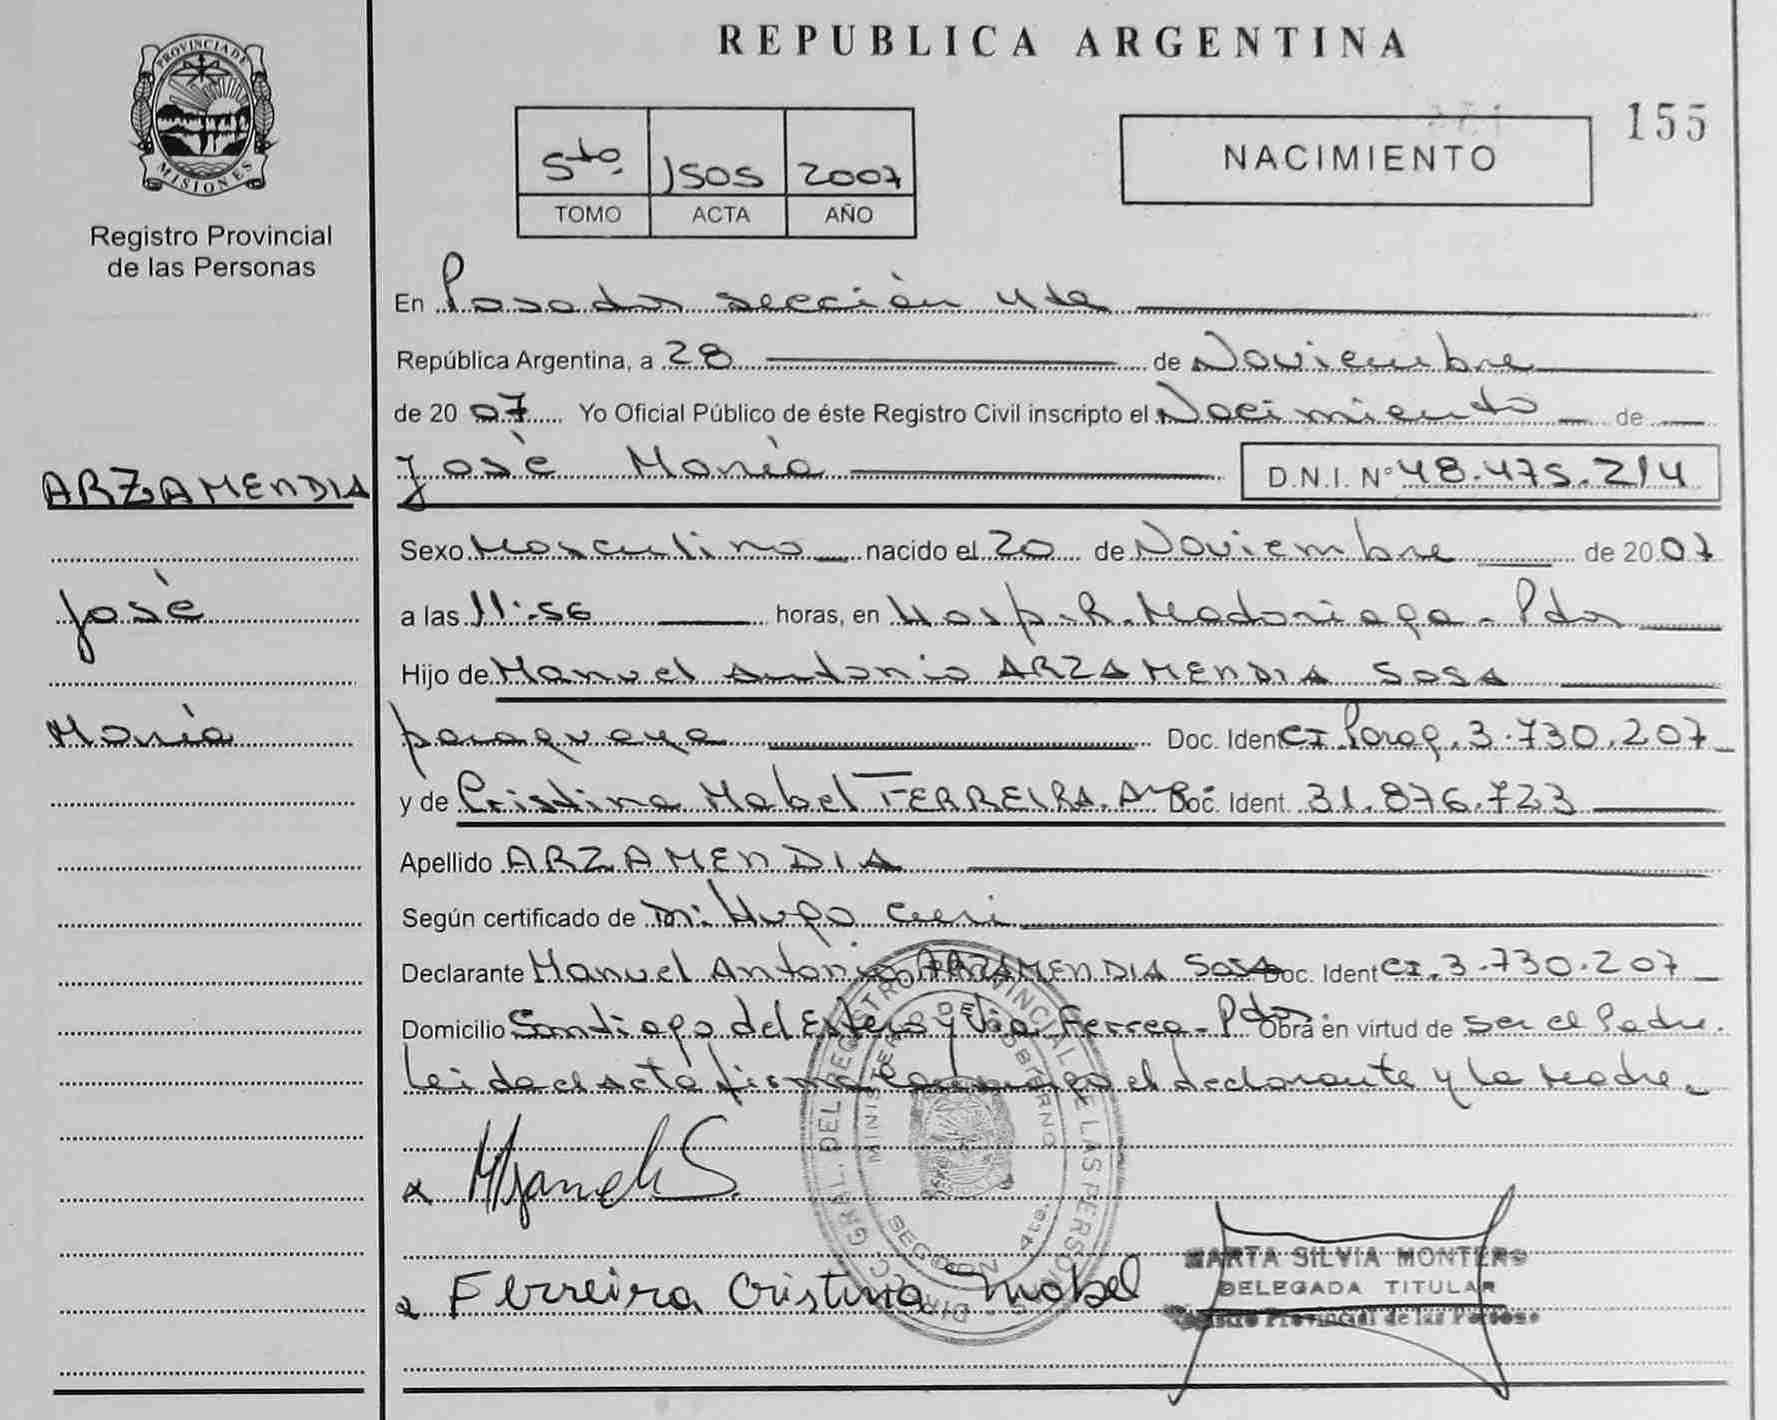 REPUBLICA ARGENTINA
155
PROVINCIA DE
MISIONES
Registro Provincial
de las Personas
5to. 1505 2007
TOMO ACTA AÑO
NACIMIENTO
En Posadas sección 4ta
República Argentina, a 28 de Noviembre
de 2007 Yo Oficial Público de éste Registro Civil inscripto el Nacimiento de
José María D.N.I. Nº 48.475.214
ARZAMENDIA
José
María
Sexo Masculino nacido el 20 de Noviembre de 2007
a las 11:56 horas, en Hosp. R. Madariaga - Pdas
Hijo de Manuel Antonio ARZAMENDIA SOSA
paraguaya Doc. Ident CI Parag. 3.730.207
y de Cristina Mabel FERREIRA. Doc. Ident. 31.876.723
Apellido ARZAMENDIA
Según certificado de Hugo
Declarante Manuel Antonio ARZAMENDIA SOSA Doc. Ident CI. 3.730.207
Domicilio Santiago del Estero y Vía Ferrea - Pdas Obra en virtud de ser el Padre.
Leida el acta firma el declarante y la Madre.
Ferreira Cristina Mabel
DIRECC. GRAL. DEL REGISTRO PROVINCIAL DE LAS PERSONAS
MINISTERIO DE GOBIERNO
SECCION 4ta.
MARTA SILVIA MONTERO
DELEGADA TITULAR
Registro Provincial de las Personas